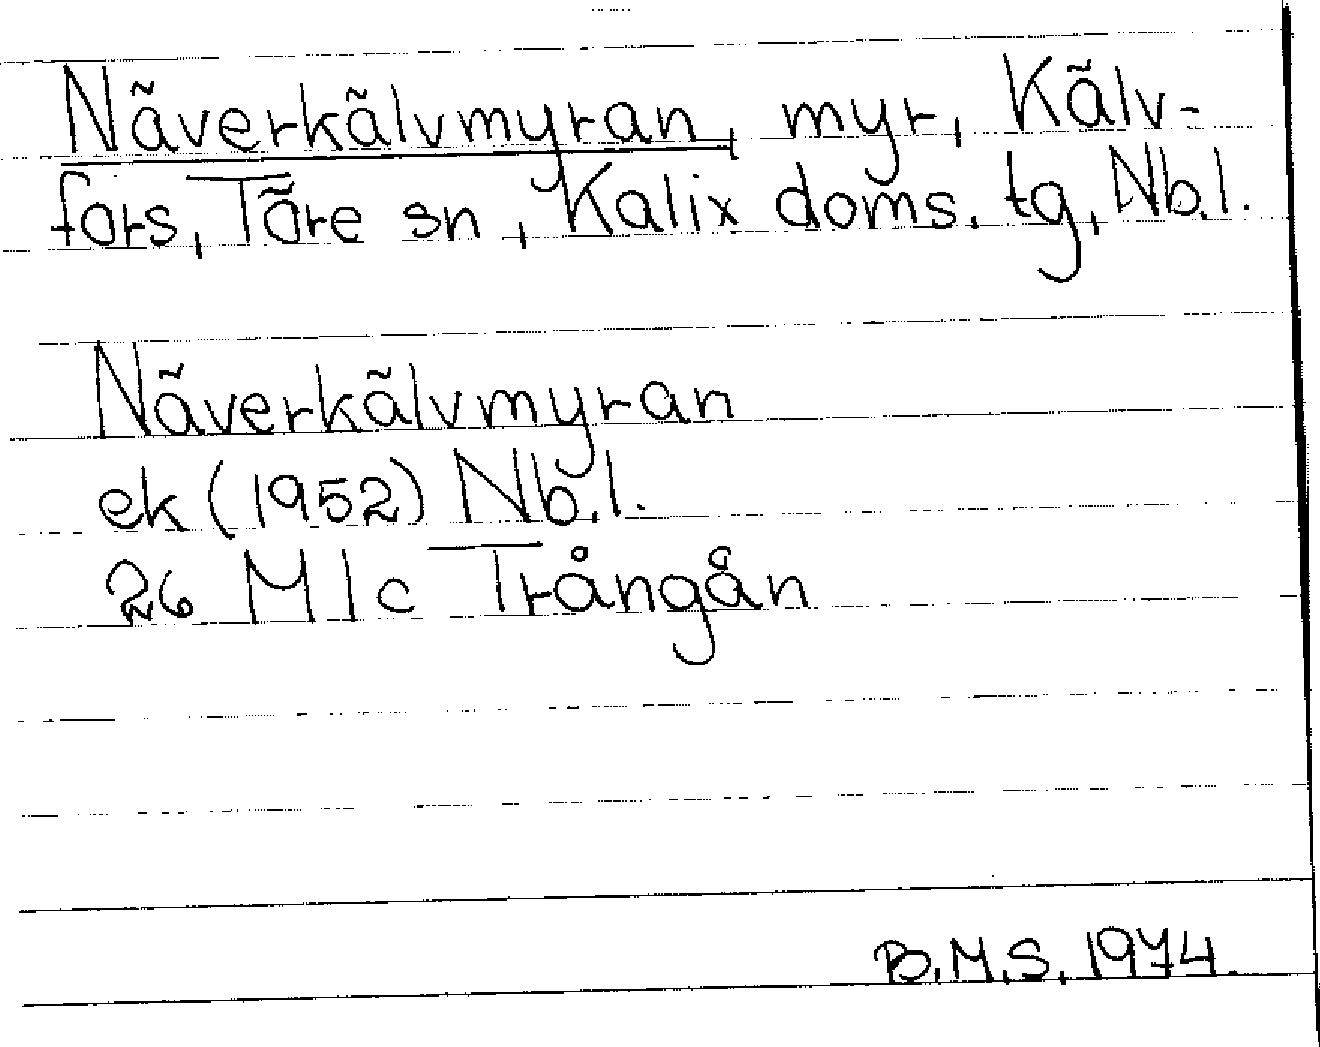 Näverkälvmyran, myr, Kälv-
fors, Töre sn, Kalix doms. tg, Nb.l.
Näverkälvmyran
ek (1952) Nb.l.
26 M 1c Trångån
B.M.S. 1974.